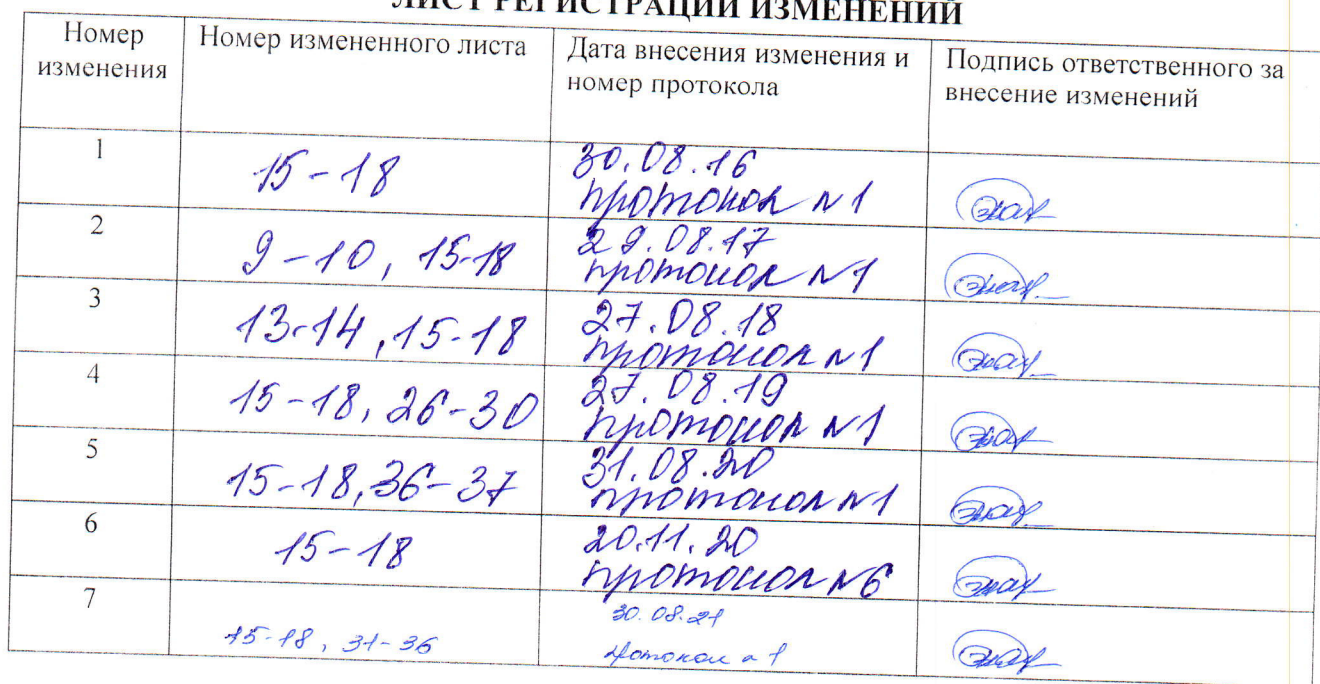 ЛИСТ РЕГИСТРАЦИИ ИЗМЕНЕНИЙ
Номер изменения
Номер измененного листа
Дата внесения изменения и номер протокола
Подпись ответственного за внесение изменений
1
15-18
30.08.16
протокол №1
2
9-10, 15-18
29.08.17
протокол №1
3
13-14, 15-18
27.08.18
протокол №1
4
15-18, 26-30
27.08.19
протокол №1
5
15-18, 36-37
31.08.20
протокол №1
6
15-18
20.11.20
протокол №6
7
15-18, 31-36
30.08.21
протокол №1